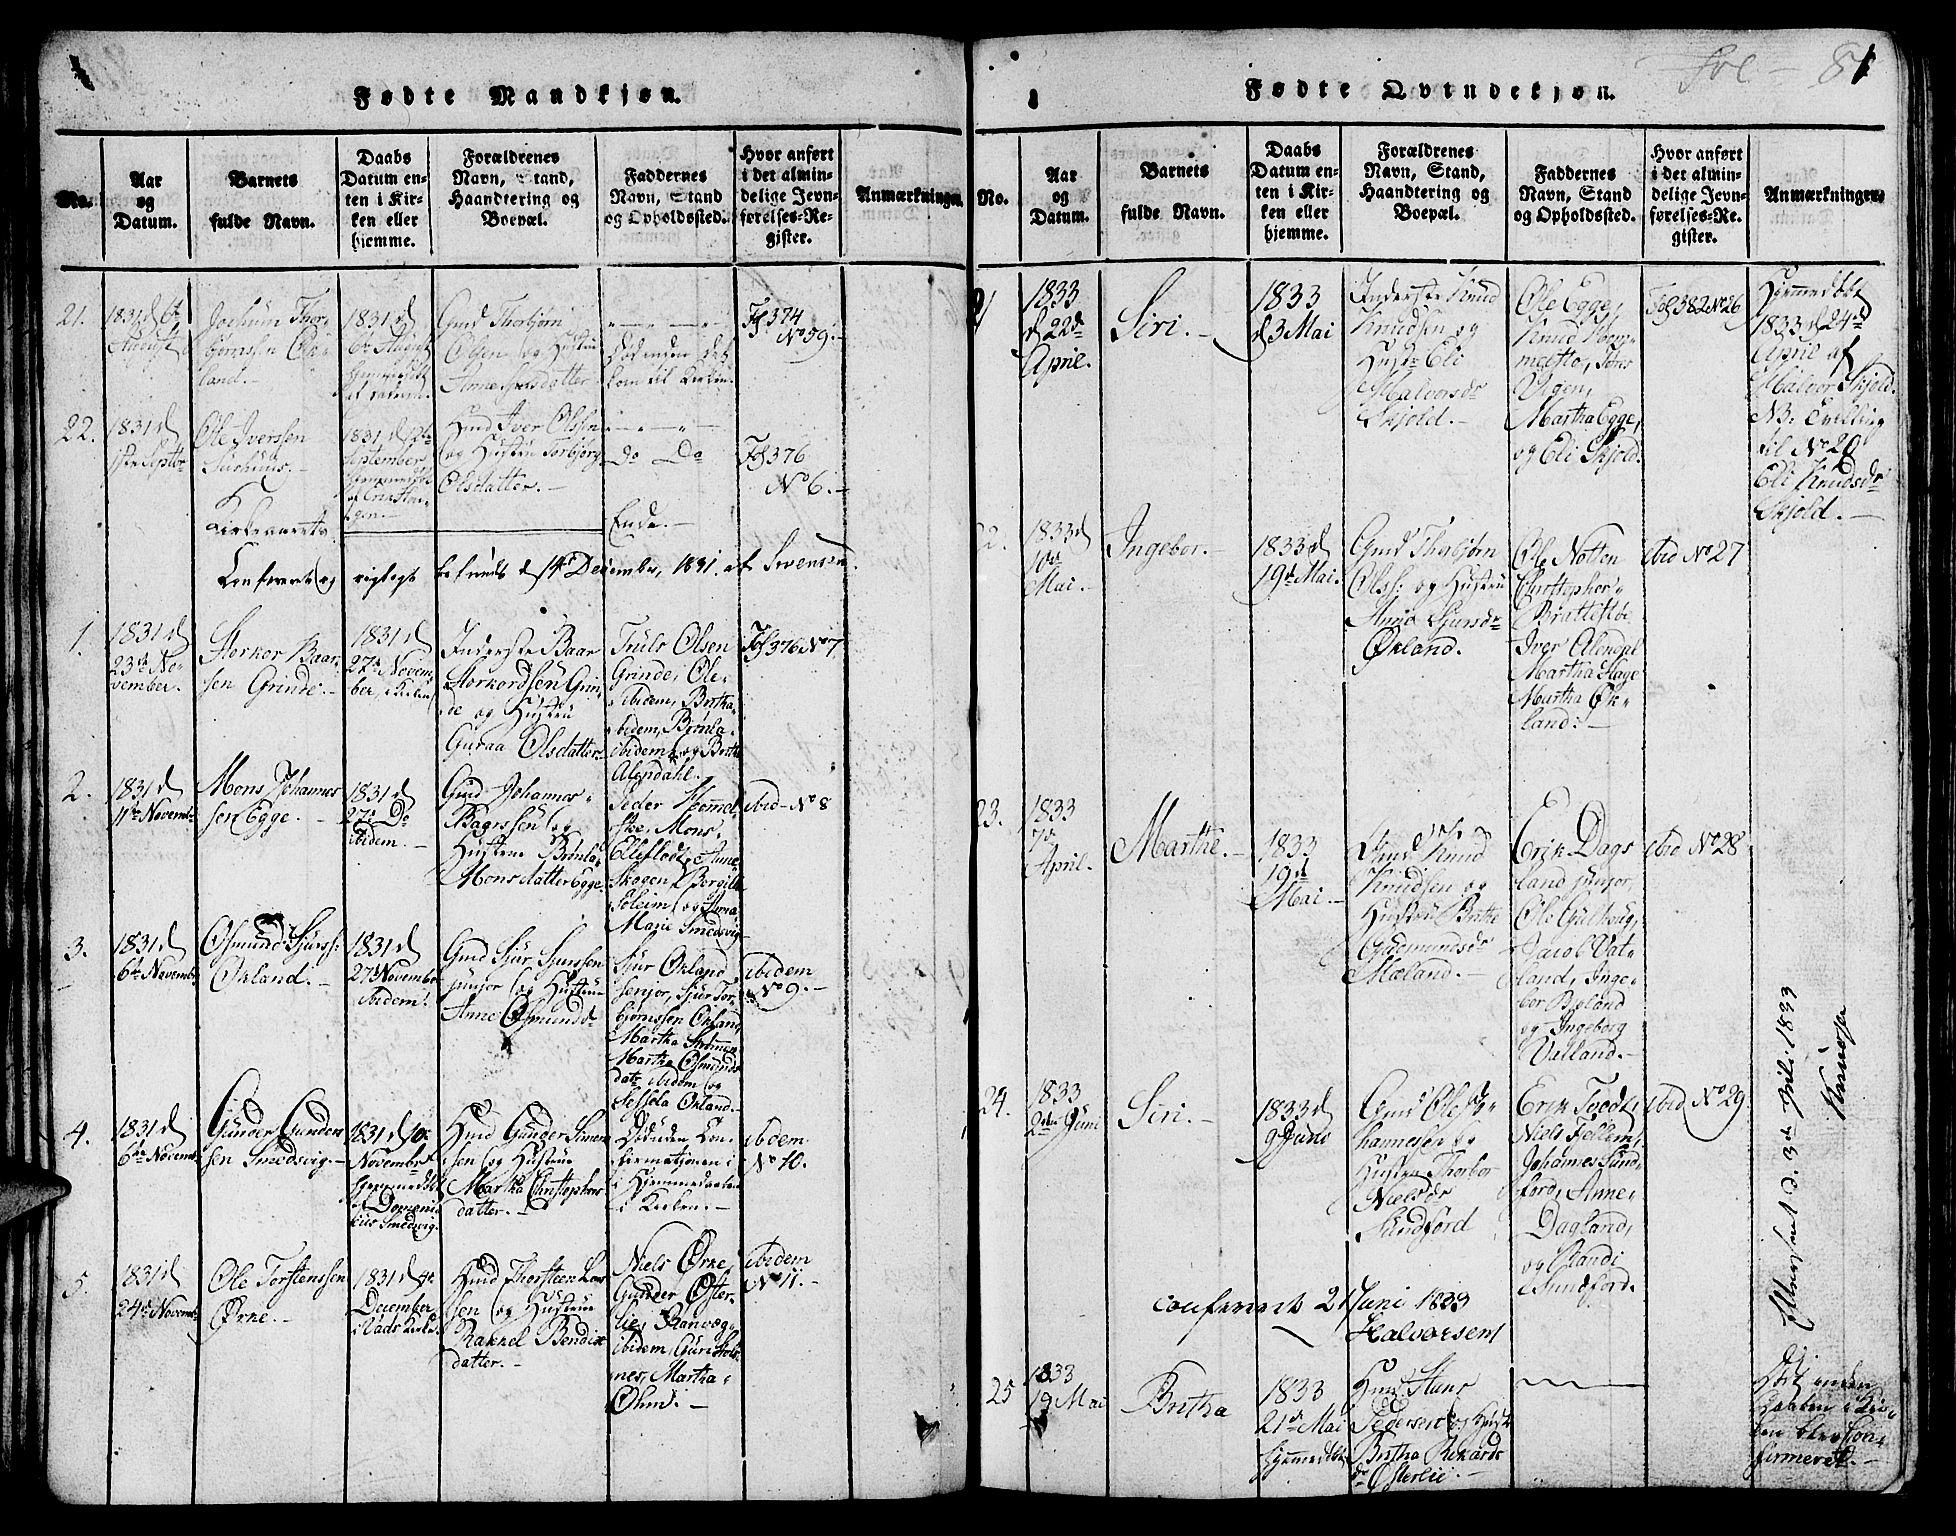 Fødte Mandkjøn.
No.
Aar
og
Datum.
Barnets
fulde Navn.
Daabs
Datum en-
ten i Kir-
ken eller
hjemme.
Forældrenes
Navn, Stand,
Haandtering og
Boepæl.
Faddernes
Navn, Stand
og Opholdssted.
Hvor anført
i det almin-
delige Jevn-
førelses-Re-
gister.
Anmærkninger.
21.
1831 d 6te
August
Jochum Thor-
bjørnssen Øk-
land.
1831 d
6te August
Gmd Thorbjørn
Olsen og Hustru
Anne
død inden det
kom til Kirken.
Fol 374
No 59.
22.
1831 d
Ole Iversen
1831 d
September
Hmd Iver Olssen
og Hustru Torbjørg
Olsdatter.
Do Do
Fol 376
No 6.
Kirkeaarets
Ende.
Confereret og rigtigt befunden d 14de December, 1831. af Svensen.
1.
1831 d
23de No-
vember.
Storkor Baar-
sen Grinde.
1831 d
27de Novem-
ber, i Kirken
Inderste Baar
Storkordsen Grin-
de og Hustru
Guraa Olsdatter
Truls Olsen
Grinde, Ole
ibidem, Britha
ibidem, Brønla
ibidem og Brith
Alendahl.
Fol 376 No 7
2.
1831 d
11te Novemb
Mons Johannes
sen Egge.
1831 d
27de Do
ibidem.
Gmd Johannes
Baarssen og
Hustru Brønla
Monsdatter Egge
Peder Hemmel
ske, Mons
Elleflodt, Anne
Skogen, Borgille
Soleim og Anna
Marie Smedsvig
ibid No 8
3.
1831 d
6te Novemb
Osmund Sjurss:
Økland.
1831 d
27de November
ibidem.
Gmd Sjur Sjurssen
junior og Hustru
Anne Osmundsdr
Sjur Økland
senjor, Sjur Tor-
bjørnssen Økland
Martha Strømmen
Martha Osmunds
datr ibidem og
Sessela Økland.
ibidem
No 9.
4.
1831 d
6te Novemb
Gunder Gunder
sen Smedsvig.
1831 d 10de
Novembr
hjemmedøbt
af Domeni
kus Smedsvig.
Hmd Gunder Simon
sen og Hustru
Martha Christopher
datter.
Døduden Con-
firmationen i
Hjemmedaaben
i Kirken.
ibidem
No 10.
5.
1831 d
24de Novemb
Ole Torstenssen
Ørke.
1831 d 4de
December
i Kirke
Hmd Thorsteen Lar
sen og Hustrue
Rakkel Bendix
datter.
Niels Ørke,
Gunder Øster-
lie, Ranveg
ibidem, Guri
nes, Martha
Ølmd.
ibidem
No 11.
Fol 81
Fødte Qvindekjøn.
No.
Aar
og
Datum.
Barnets
fulde Navn.
Daabs
Datum en-
ten i Kir-
ken eller
hjemme.
Forældrenes
Navn, Stand,
Haandtering og
Boepæl.
Faddernes
Navn, Stand
og Opholdssted.
Hvor anført
i det almin-
delige Jevn-
førelses-Re-
gister.
Anmærkninger.
21
1833
d 22de
April.
Siri.
1833
d 3 Mai
Inderste Knud
Knudsen og
Hustr Eli
Halvorsdr
Skjold.
Ole Egge,
Knud Hem-
melstø, Tørres
Vigen,
Martha Egge,
og Eli Skjold.
Fol 382 No 26
Hjemmedøbt
1833 d 24de
April af
Halvor Skjold.
NB. Tvilling
til No 20
Eli Knudsdr
Skjold.
22.
1833 d
10de
Mai.
Ingebor.
1833 d
19de Mai.
Gmd Thorbjørn
Olss: og Hustru
Anna Sjursdr
Økland.
Ole Notten
Christopher
Brattestøe
Iver Alendal
Martha Hage
Martha Øk-
land.
ibid No 27
23.
1833
7de
April.
Marthe.
1833
19de
Mai.
Gmd Knud
Knudsen og
Hustru Brithe
Gudmundsdr
Mæland.
Erik Dags
land junior,
Ole Gulhaug,
Jacob Vat-
land, Inge-
bor Bjoland
og Ingeborg
Vælland.
ibid No 28
24.
1833
2den Juni
Siri.
1833 d
9 Juni
Gmd Ole Jo-
hannesen og
Hustru Thorbor
Nielsdr
Sundfjord
Erik Tvedt,
Niels Fjellem,
Johannes Sund-
fjord, Anne
Dagland,
og Randi
Sundfjord.
ibid No 29
confereret 21 Juni 1833
Halvorsen
25
1833
19 Mai
Britha
1833
21de Mai
hjemmedøbt
Hmd Hans
Pedersen og Hustr
Britha Rikards
dr Østerlie.
Død inden
Daaben i Kir-
ken blev Con-
firmeret.
Efterseet d. 3de Juli 1833
Knudsen